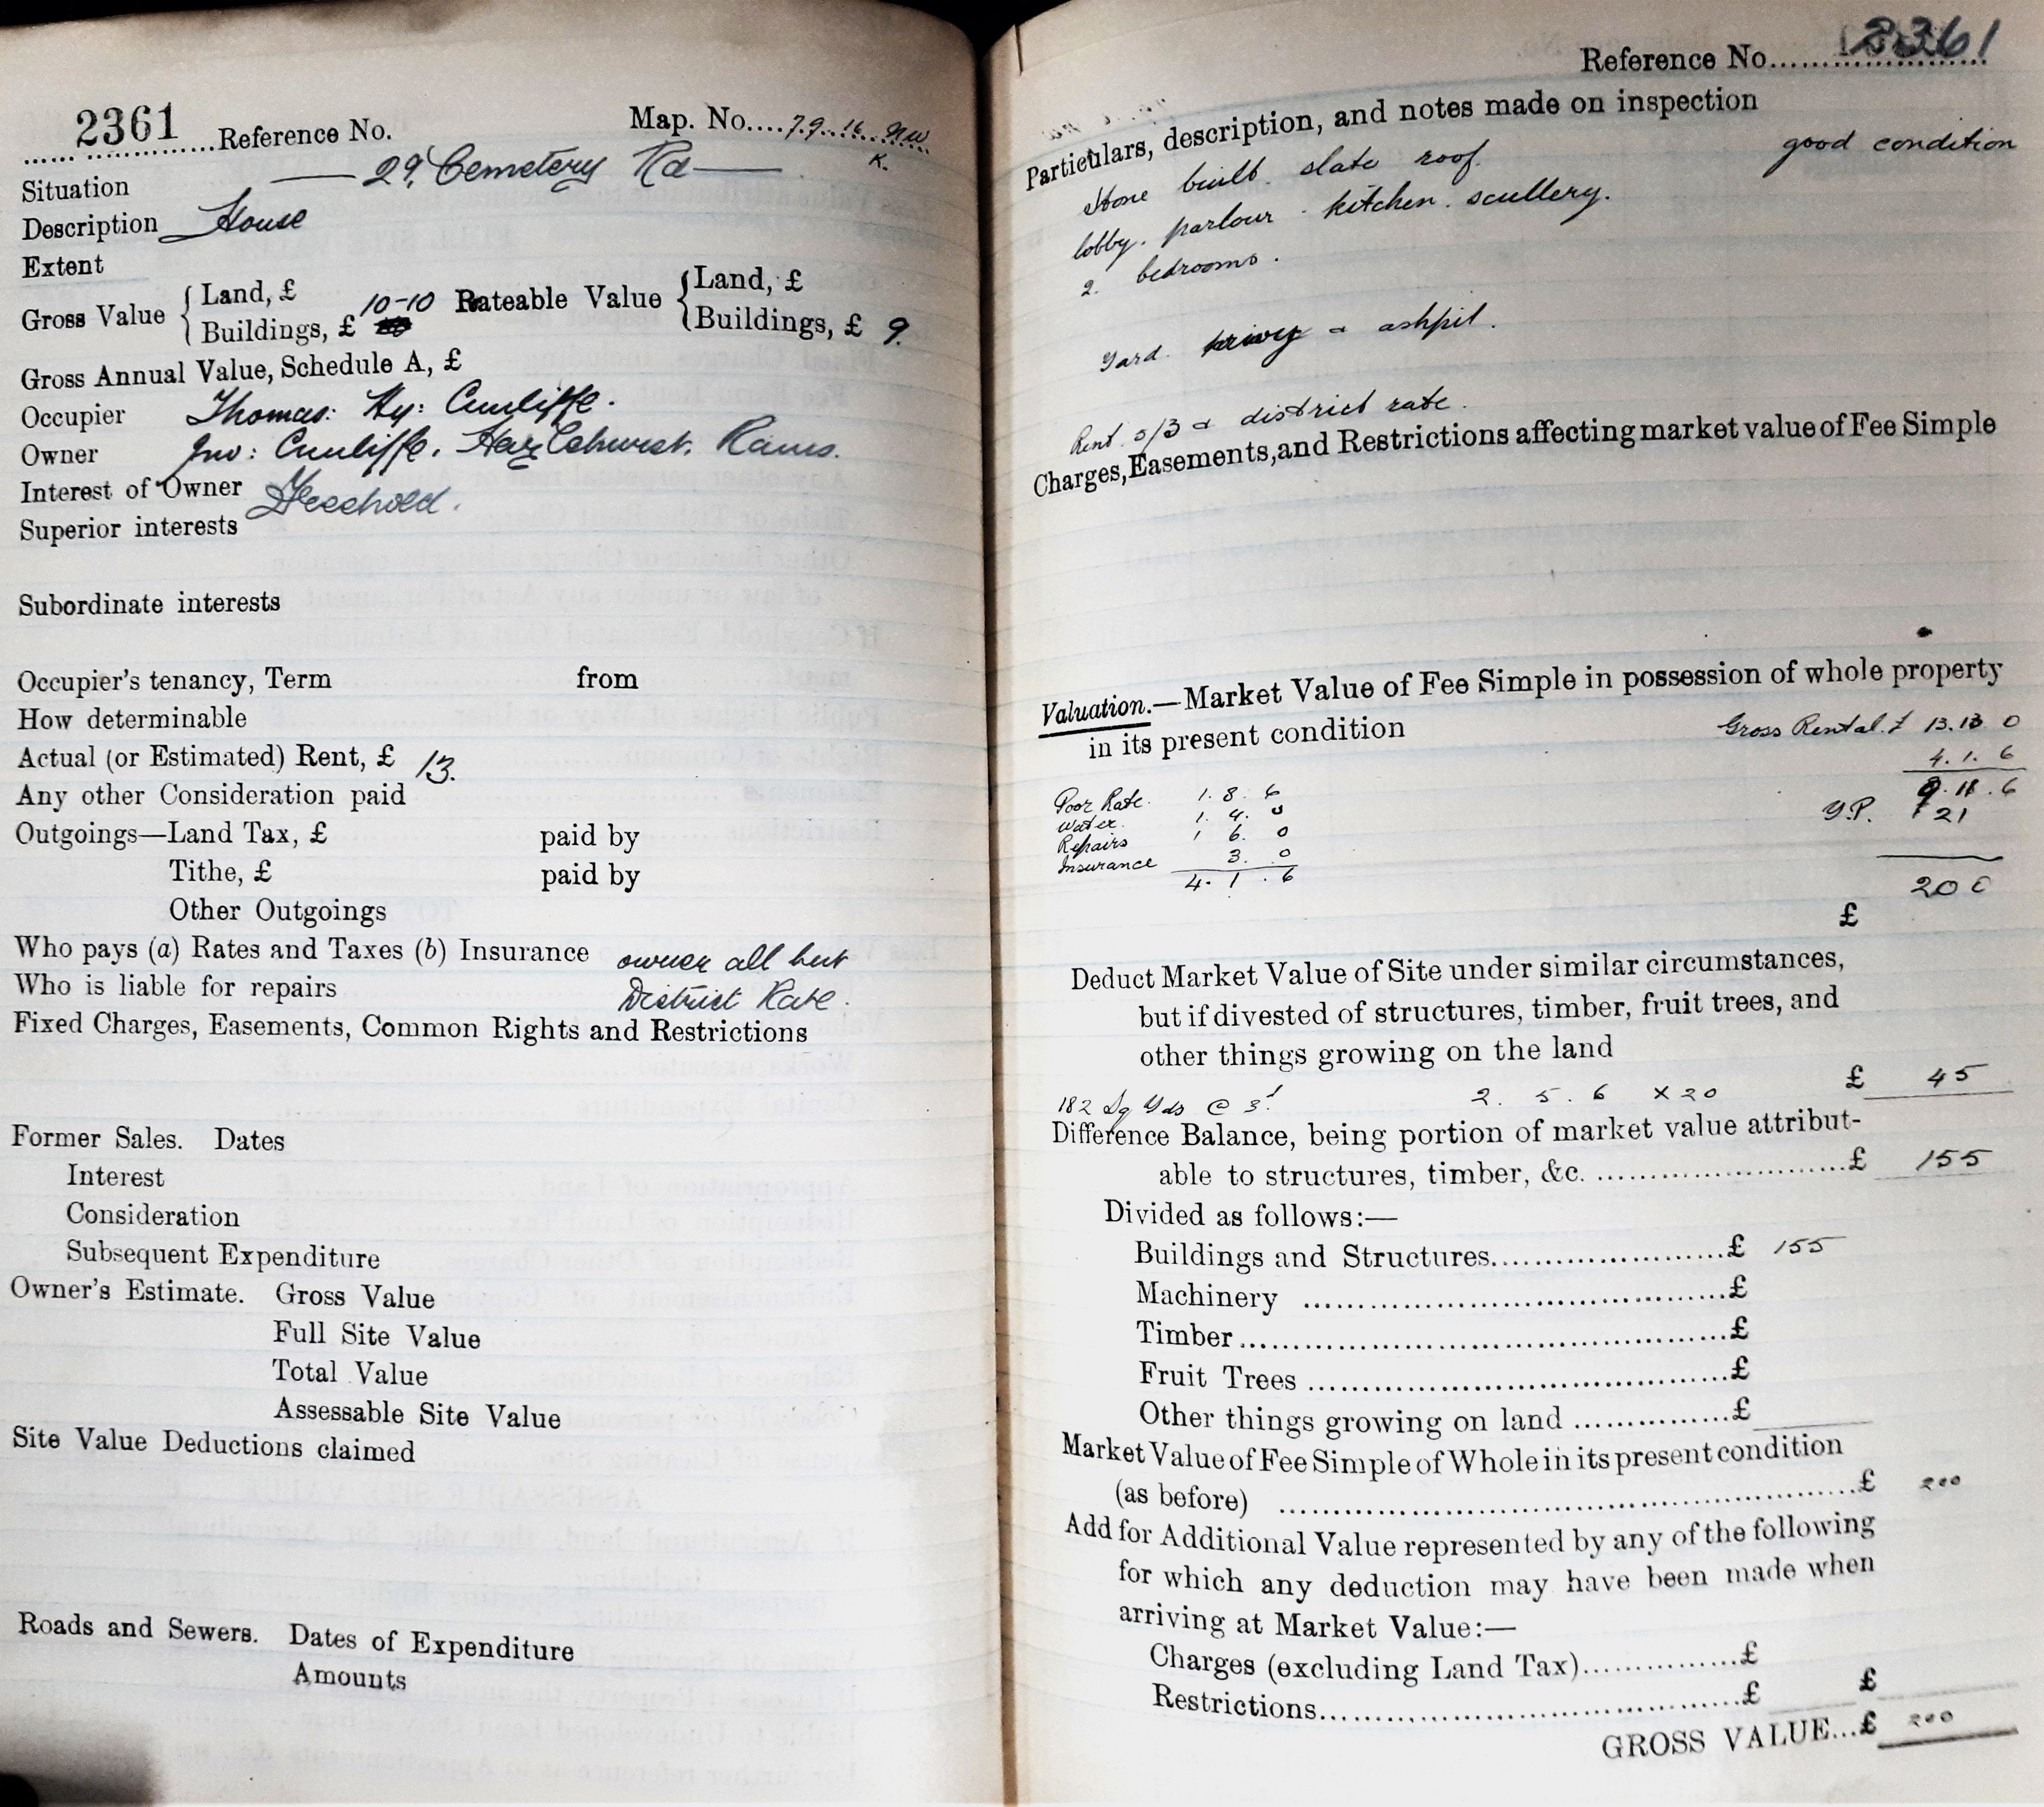 2361 Reference No. Map. No. 79. 16. NW
K.
Situation — 29, Cemetery Rd —
Description House
Extent
Gross Value { Land, £
Buildings, £ 10-10
Rateable Value { Land, £
Buildings, £ 9.
Gross Annual Value, Schedule A, £
Occupier Thomas: Hy: Cunliffe.
Owner Jno: Cunliffe, Hazlehurst, Rams.
Interest of Owner Freehold.
Superior interests
Subordinate interests
Occupier's tenancy, Term from
How determinable
Actual (or Estimated) Rent, £ 13.
Any other Consideration paid
Outgoings—Land Tax, £ paid by
Tithe, £ paid by
Other Outgoings
Who pays (a) Rates and Taxes (b) Insurance owner all but
Who is liable for repairs District Rate.
Fixed Charges, Easements, Common Rights and Restrictions
Former Sales. Dates
Interest
Consideration
Subsequent Expenditure
Owner's Estimate. Gross Value
Full Site Value
Total Value
Assessable Site Value
Site Value Deductions claimed
Roads and Sewers. Dates of Expenditure
Amounts
Reference No. 2361
Particulars, description, and notes made on inspection
Stone built. slate roof. good condition
lobby. parlour. kitchen. scullery.
2. bedrooms.
Yard. privy & ashpit.
Rent 5/3 & district rate.
Charges, Easements, and Restrictions affecting market value of Fee Simple
Valuation.—Market Value of Fee Simple in possession of whole property
in its present condition Gross Rental. £ 13. 13 0
4. 1. 6
Poor Rate. 1. 8. 6 9. 11. 6
Water. 1. 4. 0 Y.P. 21
Repairs 1 6. 0
Insurance 3. 0
4. 1. 6 200
£
Deduct Market Value of Site under similar circumstances,
but if divested of structures, timber, fruit trees, and
other things growing on the land
182 Sq Yds @ 3d 2. 5. 6 x 20 £ 45
Difference Balance, being portion of market value attribut-
able to structures, timber, &c. £ 155
Divided as follows:—
Buildings and Structures £ 155
Machinery £
Timber £
Fruit Trees £
Other things growing on land £
Market Value of Fee Simple of Whole in its present condition
(as before) £ 200
Add for Additional Value represented by any of the following
for which any deduction may have been made when
arriving at Market Value:—
Charges (excluding Land Tax) £
Restrictions £ £
GROSS VALUE...£ 200